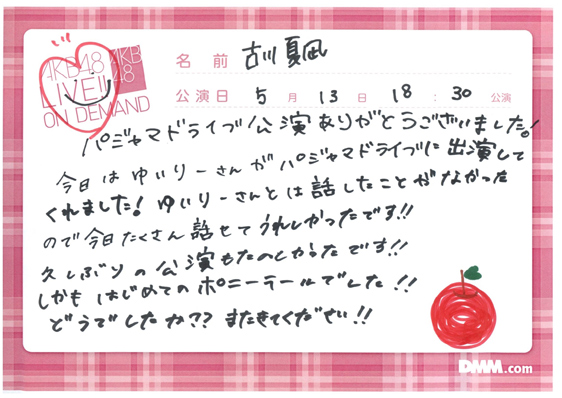 AKB48
LIVE!!
ON DEMAND
AKB
48
名前 古川夏凪
公演日 5月13日 18:30公演
パジャマドライブ公演ありがとうございました!
今日はゆいりーさんがパジャマドライブに出演して
くれました!ゆいりーさんとは話したことがなかった
ので今日たくさん話せてうれしかったです!!
久しぶりの公演もたのしかったです!!
しかもはじめてのポニーテールでした!!
どうでしたか??またきてください!!
DMM.com